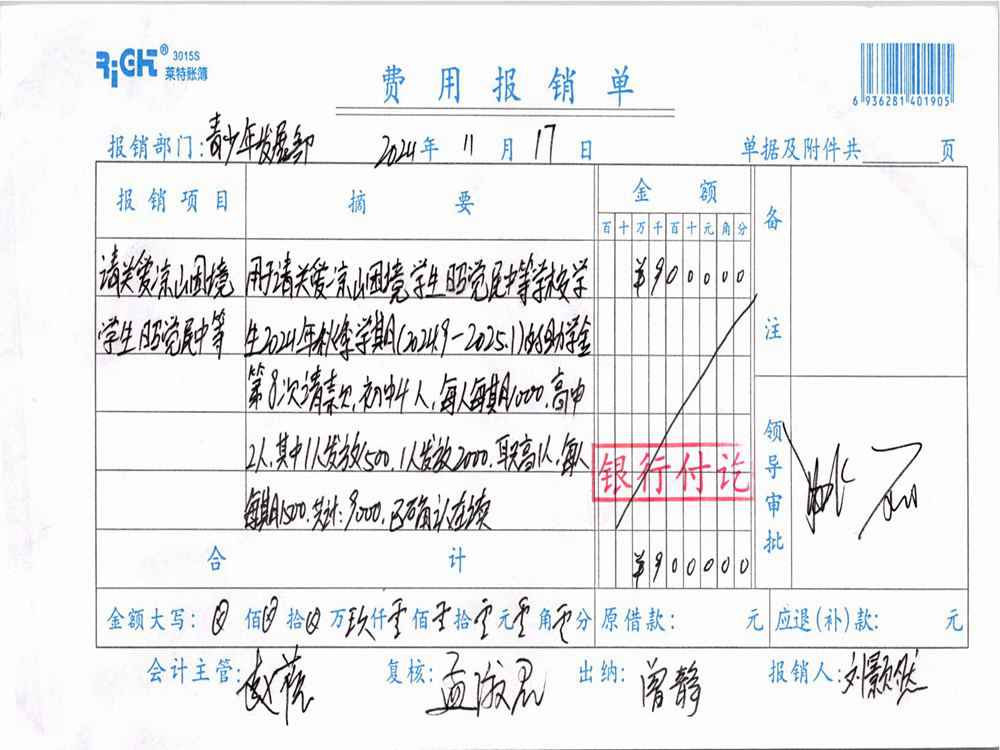 RiGHT® 3015S
莱特账簿
费用报销单
6 936281 401905
报销部门:青少年发展部 2024年11月17日 单据及附件共 页
报销项目 摘要 金额 备注
百十万千百十元角分
请关爱凉山困境 用于请关爱凉山困境学生昭觉民中等学校学 ¥900000
学生昭觉民中等 生2024年秋季学期(2024.9-2025.1)的助学金
第8次请款,初中4人,每人每期1000.高中
2人,其中1人发放1500,1人发放2000.职高1人,每人
每期1500.共计:9000,已确认在读
银行付讫
领导审批
合计 ¥900000
金额大写: 佰 拾 万玖仟零佰零拾零元零角零分 原借款: 元 应退(补)款: 元
会计主管: 复核:孟淑君 出纳:曾静 报销人:刘颢然